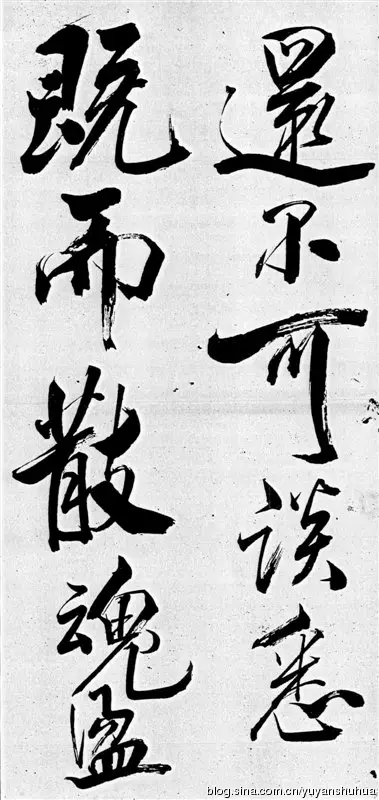 還不可談悉
既而散魂盪
blog.sina.com.cn/yuyanshuhua